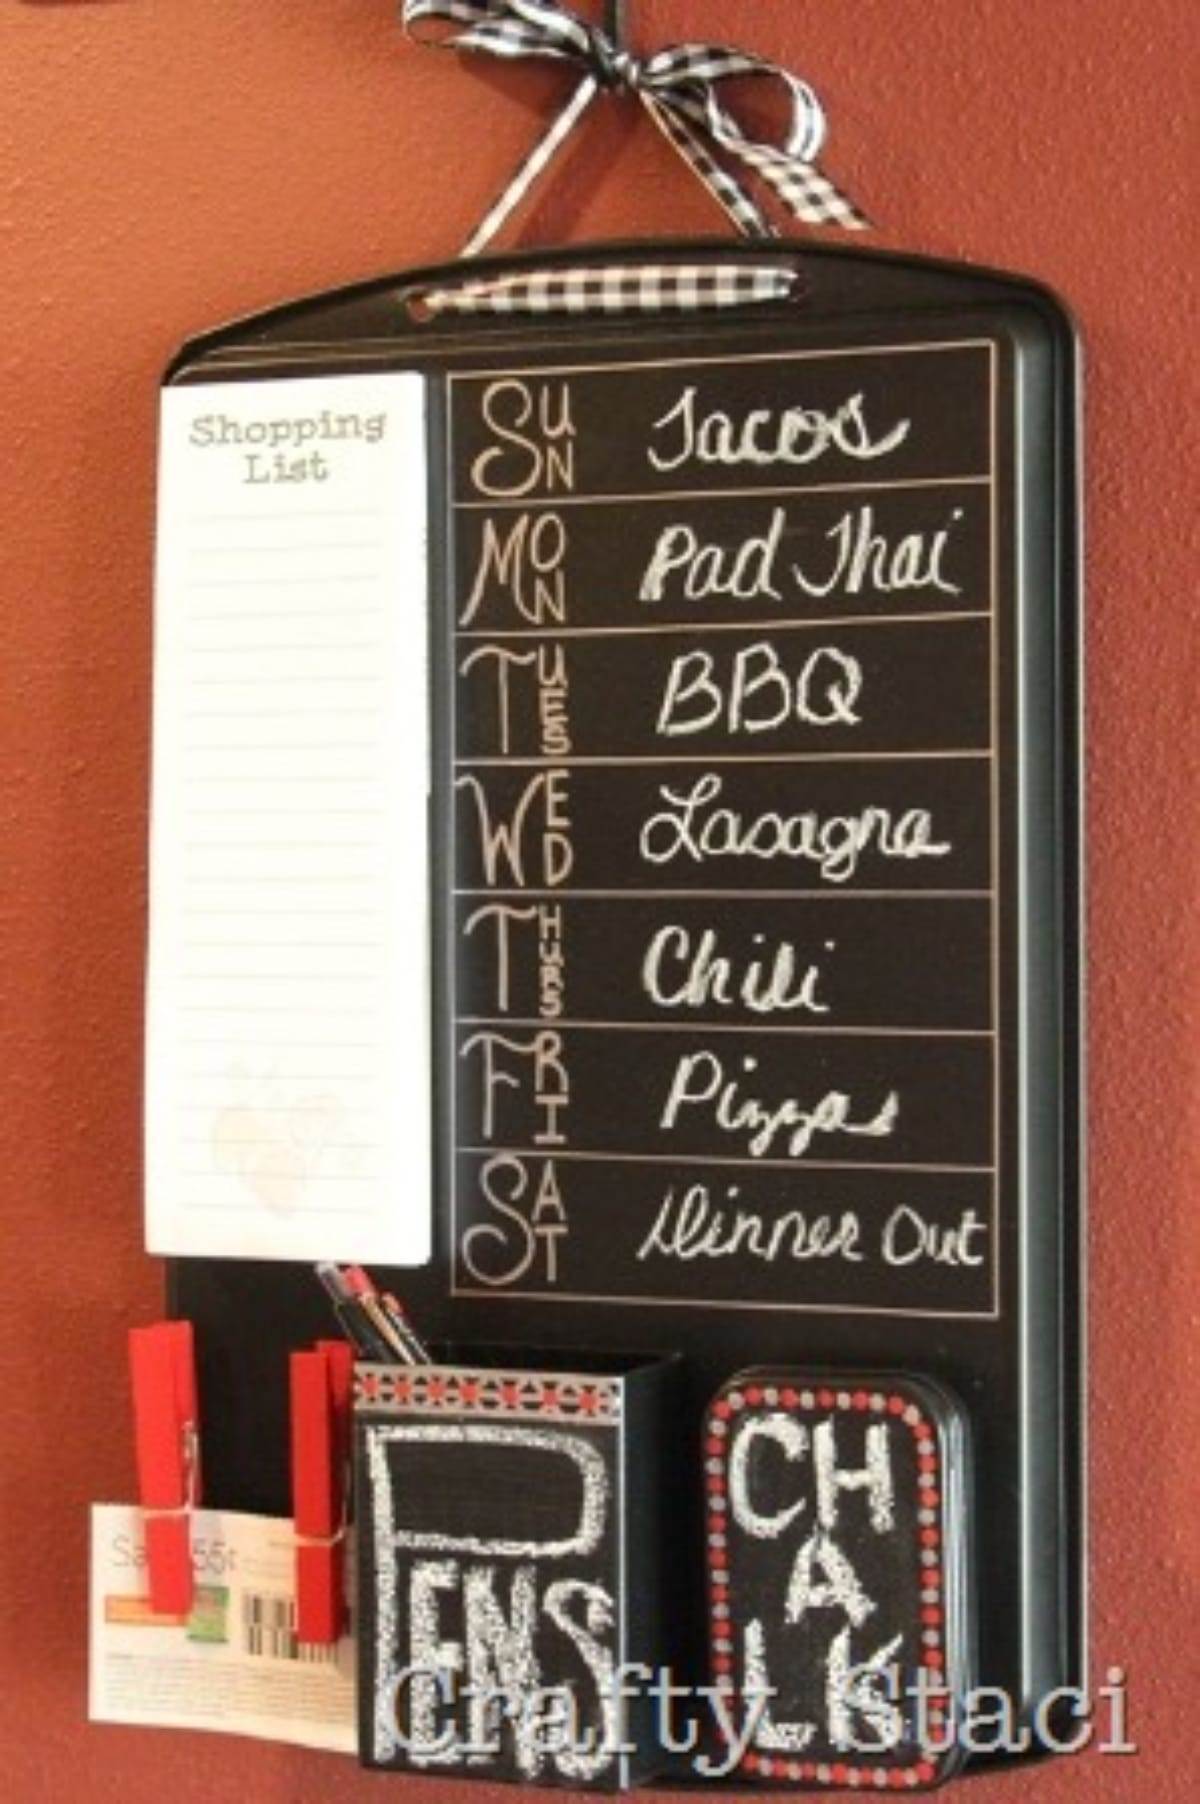 Shopping
List
SUN Tacos
MON Pad Thai
TUES BBQ
WED Lasagna
THURS Chili
FRI Pizza
SAT Dinner Out
55¢
PENS
CHALK
Crafty Staci